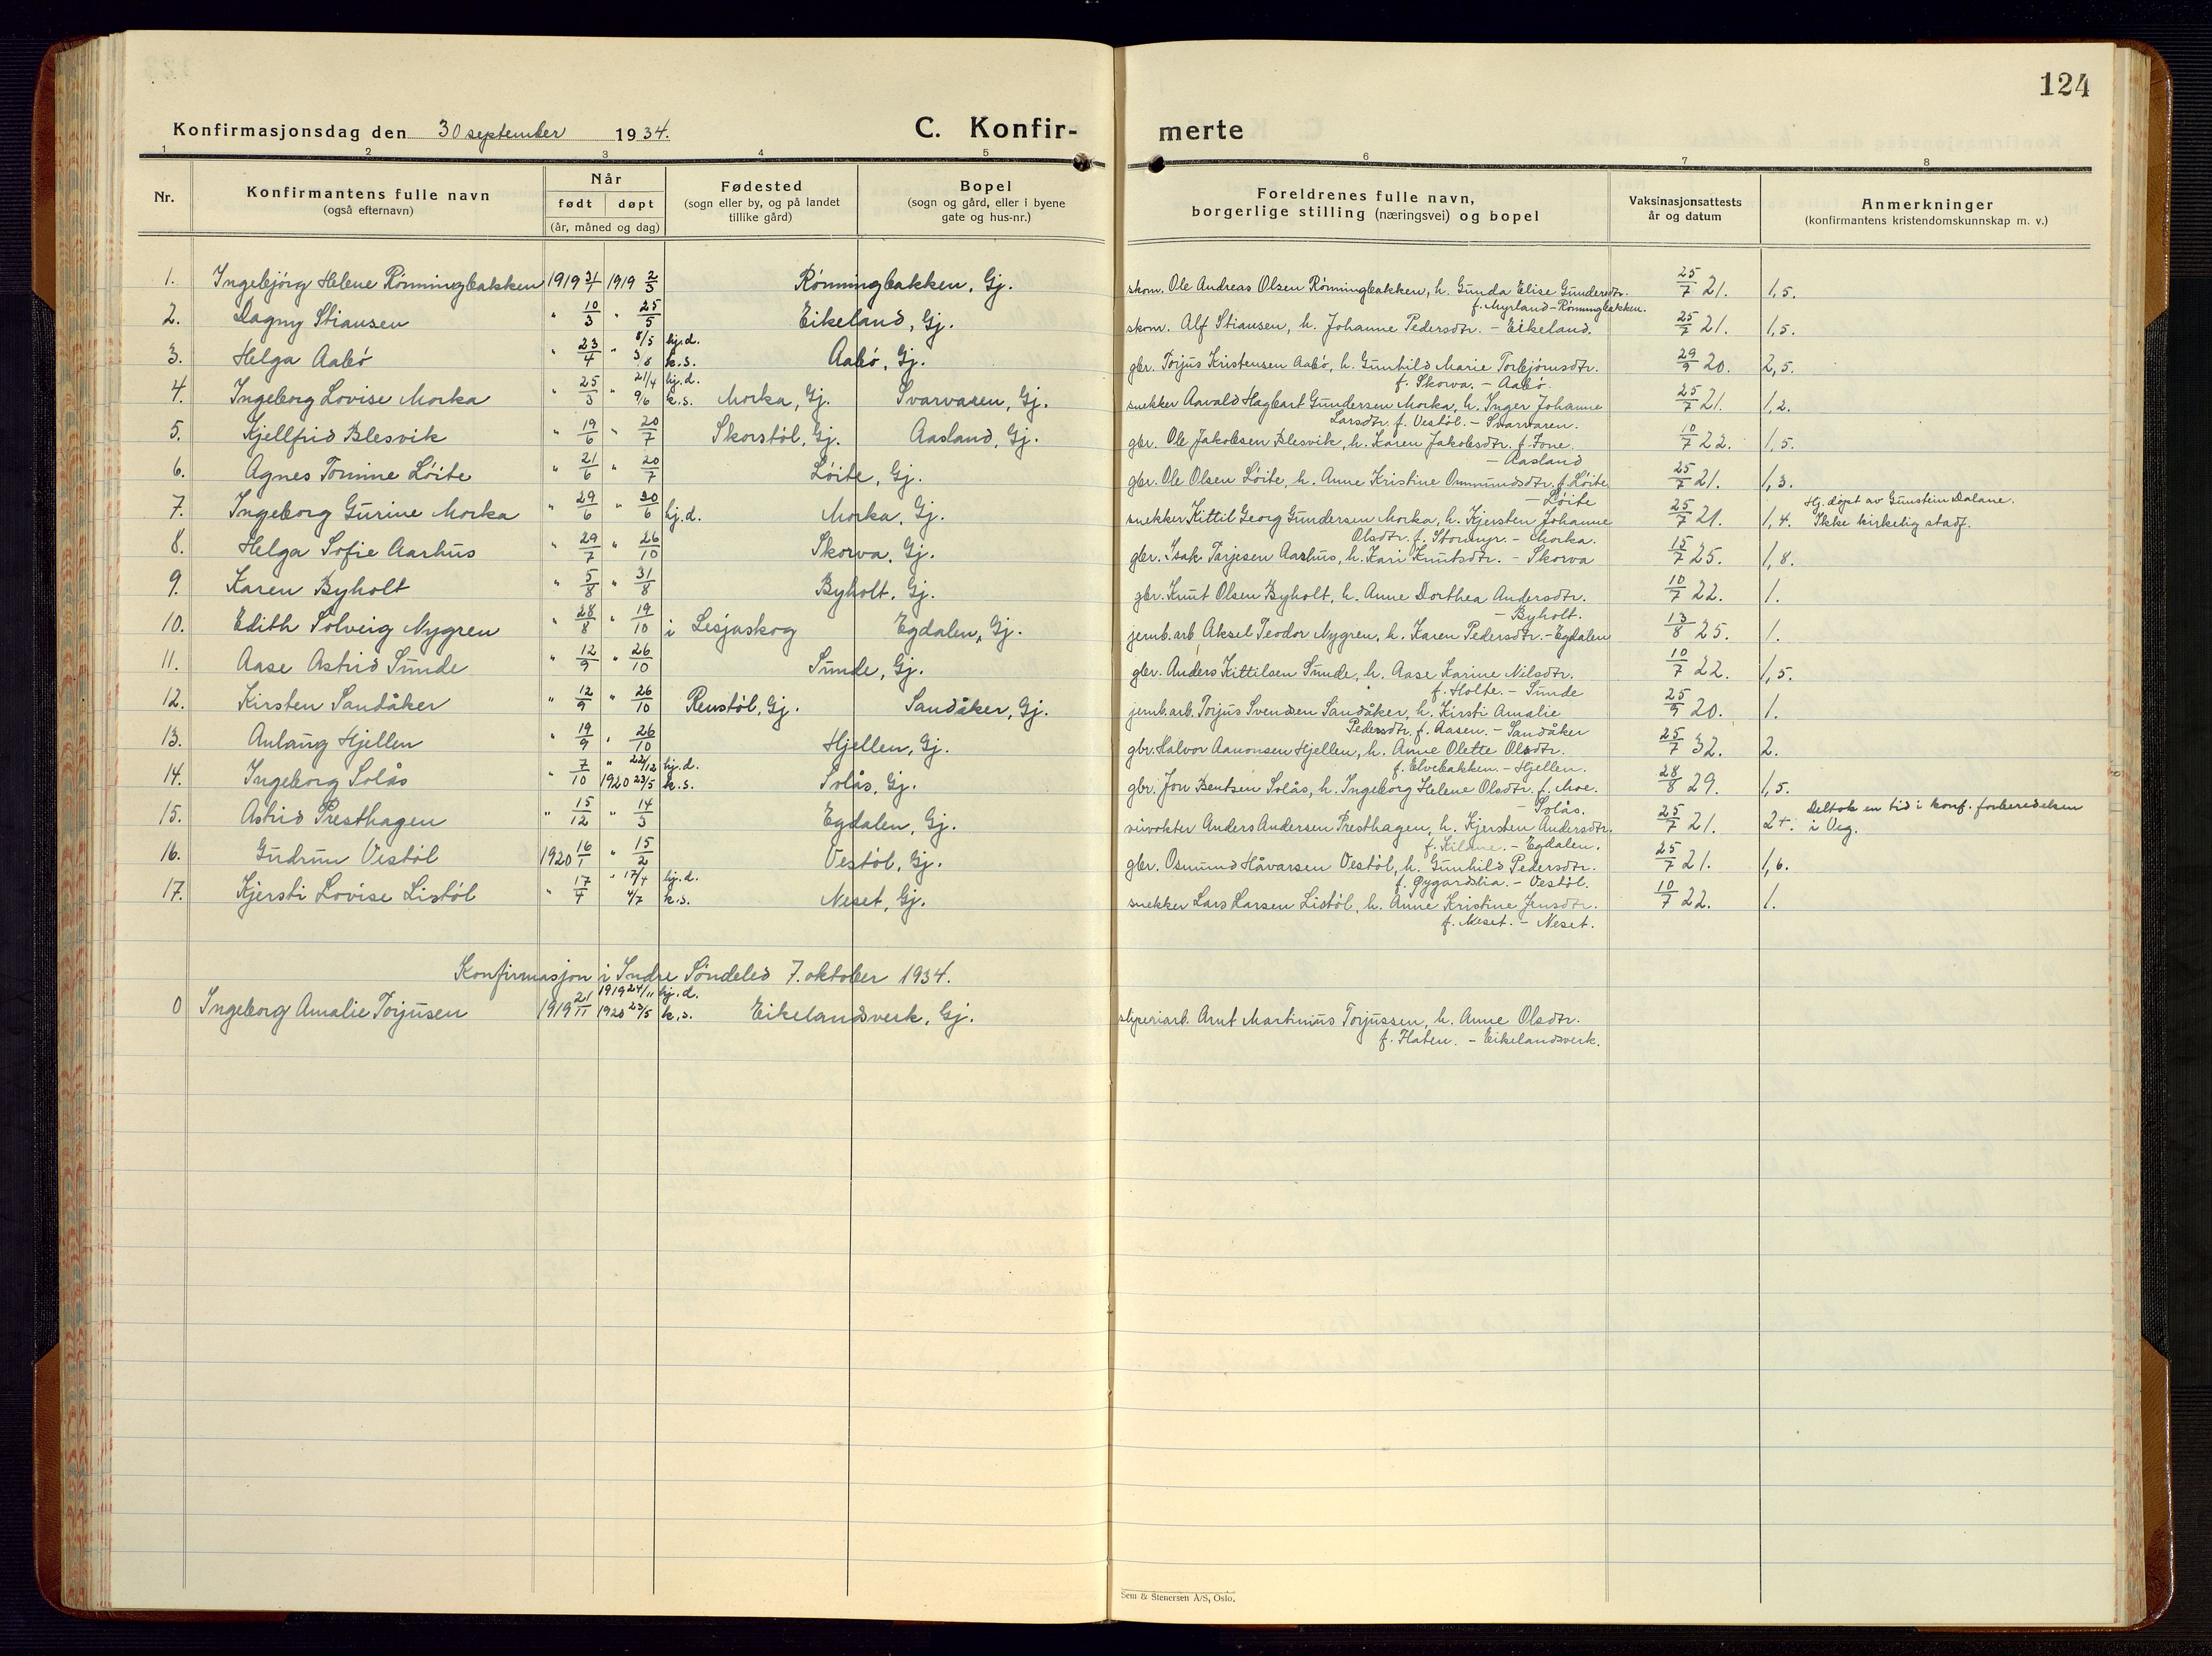 124
Konfirmasjonsdag den 30 september 1934.
C. Konfir-merte
1 2 3 4 5 6 7 8
Nr.
Konfirmantens fulle navn
(også efternavn)
Når
født døpt
(år, måned og dag)
Fødested
(sogn eller by, og på landet
tillike gård)
Bopel
(sogn og gård, eller i byene
gate og hus-nr.)
Foreldrenes fulle navn,
borgerlige stilling (næringsvei) og bopel
Vaksinasjonsattests
år og datum
Anmerkninger
(konfirmantens kristendomskunnskap m. v.)
1. Ingebjörg Helene Rönningbakken 1919 31/1 1919 2/3 Rönningbakken, Gj. skom. Ole Andreas Olsen Rönningbakken, h. Gunda Elise Gundersdtr. 25/7 21. 1,5.
f. Myrland - Rönningbakken.
2. Dagny Stiansen " 10/3 " 25/5 Eikeland, Gj. skom. Alf Stiansen, h. Johanne Pedersdtr. - Eikeland. 25/7 21. 1,5.
3. Helga Aabö " 23/4 " 8/5 hj.d. 3/8 k.s. Aabö, Gj. gbr. Torjus Kristensen Aabö, h. Gunhild Marie Torbjörnsdtr. 29/9 20. 2,5.
f. Skorva. - Aabö.
4. Ingeborg Lovise Morka " 25/3 21/4 hj.d. 9/6 k.s. Morka, Gj. Svarvaren, Gj. snekker Aavald Hagbart Gundersen Morka, h. Inger Johanne 25/7 21. 1,2.
Larsdtr. f. Vestöl. - Svarvaren.
5. Kjellfrid Blesvik " 19/6 " 20/7 Skorstöl, Gj. Aasland, Gj. gbr. Ole Jakobsen Blesvik, h. Karen Jakobsdtr. f. Fone. 10/7 22. 1,5.
- Aasland
6. Agnes Tomine Löite " 21/6 " 20/7 Löite, Gj. gbr. Ole Olsen Löite, h. Anne Kristine Ommundsdtr. f. Löite 25/7 21. 1,3.
- Löite
7. Ingeborg Gurine Morka " 29/6 " 30/6 hj.d. Morka, Gj. snekker Kittil Georg Gundersen Morka, h. Kjersten Johanne 25/7 21. 1,4. Hj. döpt av Gunstein Dalane.
Ikke kirkelig stadf.
Olsdtr. f. Stormyr. - Morka.
8. Helga Sofie Aarhus " 29/7 " 26/10 Skorva, Gj. gbr. Isak Tarjesen Aarhus, h. Kari Knutsdtr. - Skorva 15/7 25. 1,8.
9. Karen Byholt " 5/8 " 31/8 Byholt, Gj. gbr. Knut Olsen Byholt, h. Anne Dorthea Andersdtr. 10/7 22. 1.
- Byholt.
10. Edith Solveig Nygren " 28/8 " 19/10 i Lesjaskog Egdalen, Gj. jernb.arb Aksel Teodor Nygren, h. Karen Pedersdtr. - Egdalen 13/8 25. 1.
11. Aase Astrid Sunde " 12/9 " 26/10 Sunde, Gj. gbr. Anders Kittilsen Sunde, h. Aase Karine Nilsdtr. 10/7 22. 1,5.
f. Holte. - Sunde
12. Kirsten Sandåker " 12/9 " 26/10 Renstöl, Gj. Sandåker, Gj. jernb.arb. Torjus Svendsen Sandåker, h. Kirsti Amalie 25/9 20. 1.
Pedersdtr. f. Aasen. - Sandåker
13. Anlaug Hjellen " 19/9 " 26/10 Hjellen, Gj. gbr. Halvor Aanonsen Hjellen, h. Anne Olette Olsdtr. 25/7 32. 2.
f. Elvebakken. - Hjellen.
14. Ingeborg Solås " 7/10 " 22/12 hj.d. 1920 23/5 k.s. Solås, Gj. gbr. Jon Bentsen Solås, h. Ingeborg Helene Olsdtr. f. Moe. 28/8 29. 1,5.
- Solås.
15. Astrid Presthagen " 15/12 " 14/3 Egdalen, Gj. Anders Andersen Presthagen, h. Kjersten Andersdtr. 25/7 21. 2+. Deltok en tid i konf. forberedelsen
i Veg.
f. Kilane. - Egdalen.
16. Gudrun Vestöl 1920 16/1 " 15/2 Vestöl, Gj. gbr. Osmund Håvarsen Vestöl, h. Gunhild Pedersdtr. 25/7 21. 1,6.
f. Øygardslia. - Vestöl.
17. Kjersti Lovise Listöl " 17/4 " 17/4 hj.d. 4/7 k.s. Neset, Gj. snekker Lars Larsen Listöl, h. Anne Kristine Jensdtr. 10/7 22. 1.
f. Neset. - Neset.
Konfirmasjon i Indre Söndeled 7. oktober 1934.
0 Ingeborg Amalie Torjusen 1919 21/11 1919 24/11 hj.d. 1920 23/5 k.s. Eikelandsverk, Gj. støperiarb. Arnt Martinius Torjussen, h. Anne Olsdtr.
f. Flaten. - Eikelandsverk.
Sem & Stenersen A/S, Oslo.